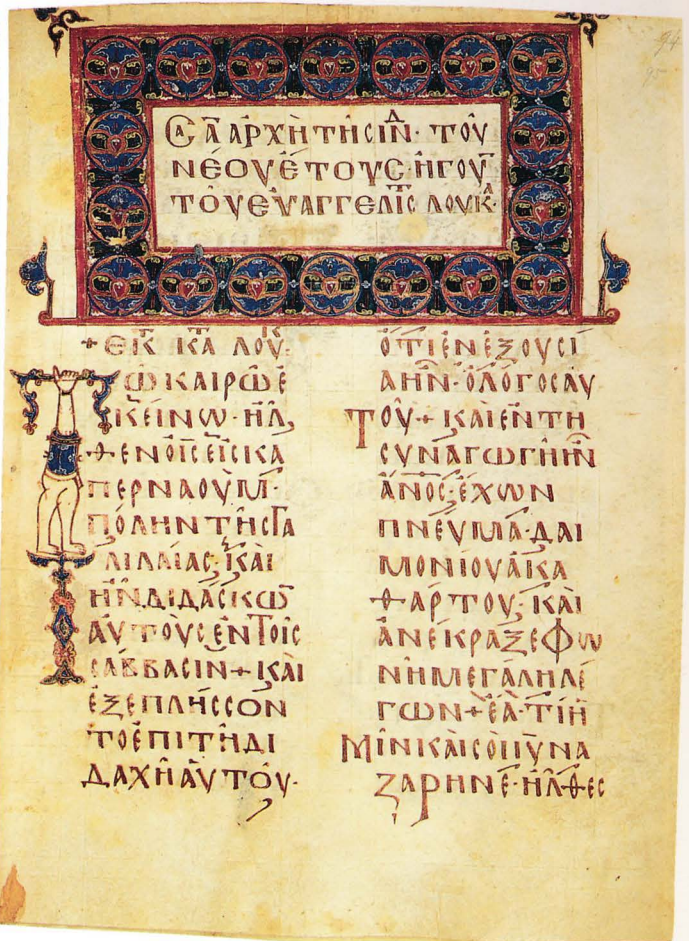 Σα Ᾱ ΑΡΧΗ ΤΗϹ ΙΝΔ· ΤΟΥ
ΝΕΟΥ ΕΤΟΥϹ· ΗΓΟΥ
ΤΟΥ ΕΥΑΓΓΕΛΙϹ ΛΟΥΚ·
+ ΕΚ ΚΑ ΛΟΥΚ:
ΤΩ ΚΑΙΡΩ Ε
ΚΕΙΝΩ· ΗΛ
ΘΕΝ Ο ΙϹ ΕΙϹ ΚΑ
ΠΕΡΝΑΟΥΜ·
ΠΟΛΗΝ ΤΗϹ ΓΑ
ΛΙΛΑΙΑϹ· ΚΑΙ
ΗΝ ΔΙΔΑϹΚΩ
ΑΥΤΟΥϹ ΕΝ ΤΟΙϹ
ϹΑΒΒΑϹΙΝ + ΚΑΙ
ΕΞΕΠΛΗϹϹΟΝ
ΤΟ ΕΠΙ ΤΗ ΔΙ
ΔΑΧΗ ΑΥΤΟΥ·
ΟΤΙ ΕΝ ΕΞΟΥϹΙ
Α ΗΝ· Ο ΛΟΓΟϹ ΑΥ
ΤΟΥ + ΚΑΙ ΕΝ ΤΗ
ϹΥΝΑΓΩΓΗ ΗΝ
ΑΝΟϹ· ΕΧΩΝ
ΠΝΕΥΜΑ· ΔΑΙ
ΜΟΝΙΟΥ ΑΚΑ
ΘΑΡΤΟΥ· ΚΑΙ
ΑΝΕΚΡΑΞΕ ΦΩ
ΝΗ ΜΕΓΑΛΗ ΛΕ
ΓΩΝ + ΕΑ· ΤΙ Η
ΜΙΝ ΚΑΙ ϹΟΙ ΙΥ ΝΑ
ΖΑΡΗΝΕ· ΗΛΘΕϹ